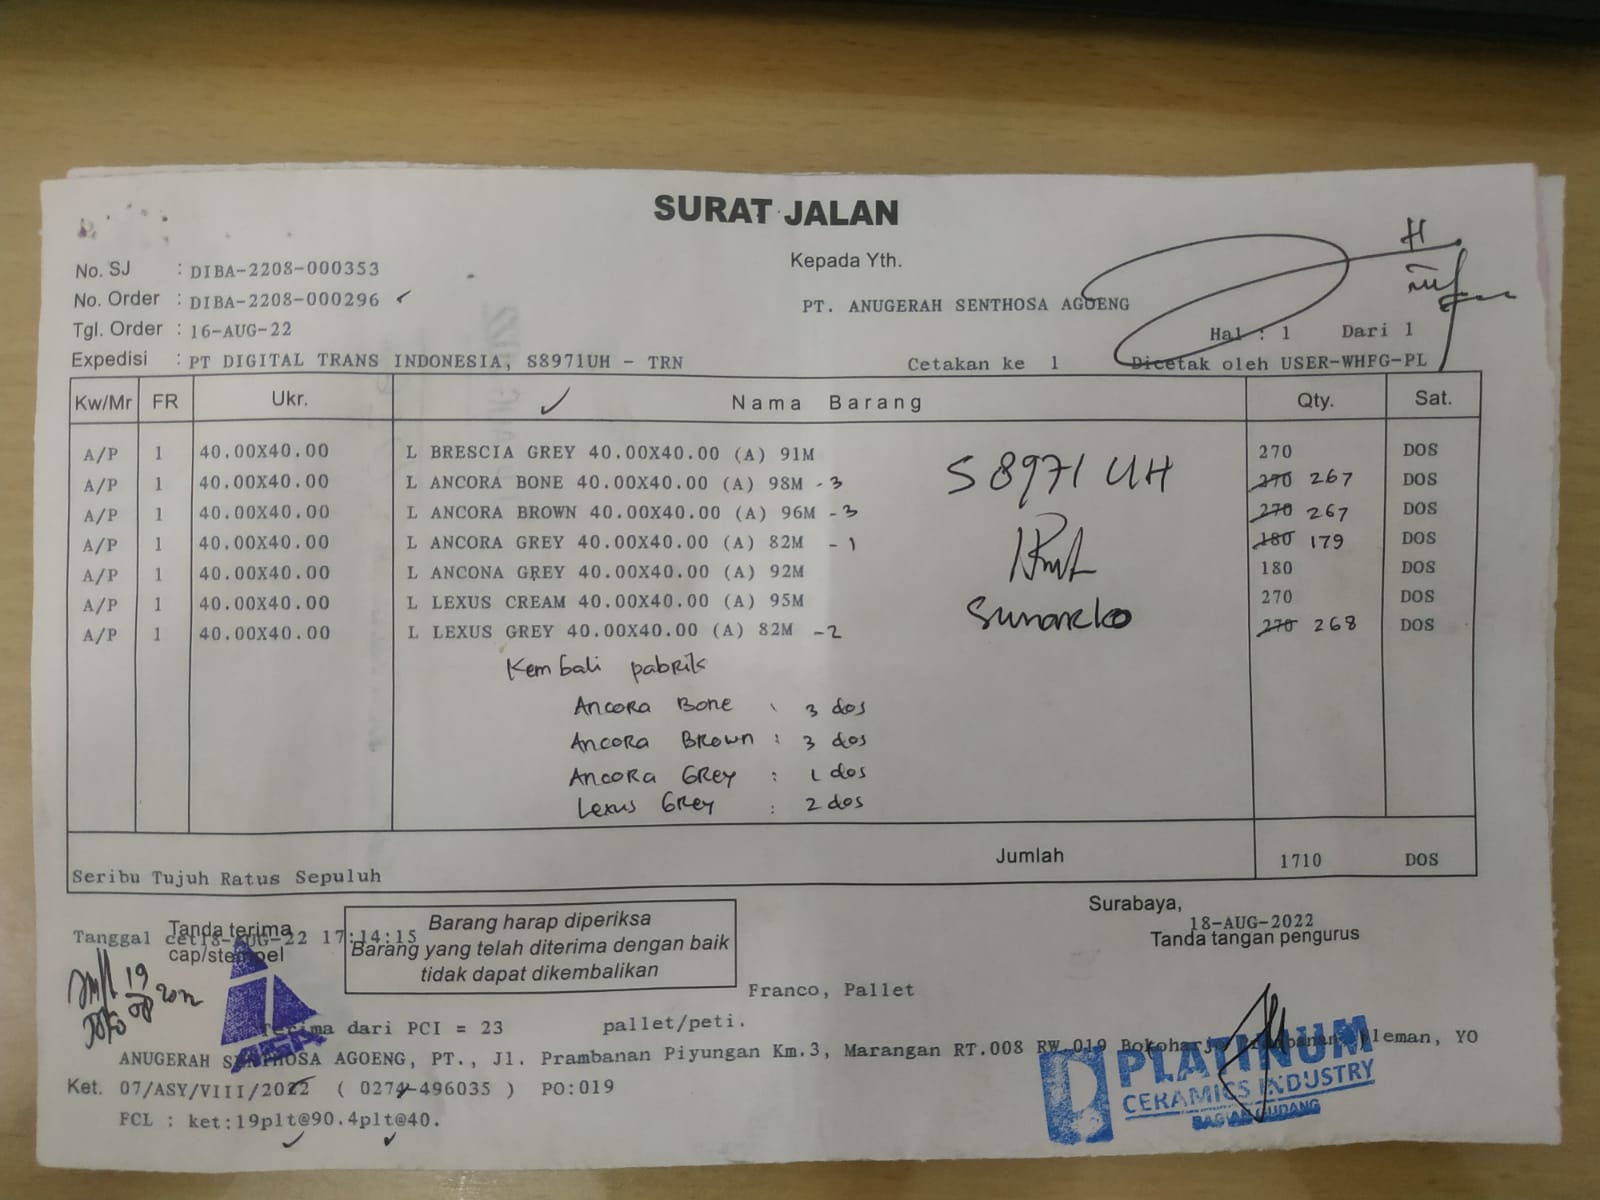 SURAT JALAN
No. SJ : DIBA-2208-000353
No. Order : DIBA-2208-000296
Tgl. Order : 16-AUG-22
Expedisi : PT DIGITAL TRANS INDONESIA, S8971UH - TRN
Kepada Yth.
PT. ANUGERAH SENTHOSA AGOENG
Hal : 1 Dari 1
Cetakan ke 1 Dicetak oleh USER-WHFG-PL
Kw/Mr FR Ukr. Nama Barang Qty. Sat.
A/P 1 40.00X40.00 L BRESCIA GREY 40.00X40.00 (A) 91M 270 DOS
A/P 1 40.00X40.00 L ANCORA BONE 40.00X40.00 (A) 98M -3 270 267 DOS
A/P 1 40.00X40.00 L ANCORA BROWN 40.00X40.00 (A) 96M -3 270 267 DOS
A/P 1 40.00X40.00 L ANCORA GREY 40.00X40.00 (A) 82M -1 180 179 DOS
A/P 1 40.00X40.00 L ANCONA GREY 40.00X40.00 (A) 92M 180 DOS
A/P 1 40.00X40.00 L LEXUS CREAM 40.00X40.00 (A) 95M 270 DOS
A/P 1 40.00X40.00 L LEXUS GREY 40.00X40.00 (A) 82M -2 270 268 DOS
S 8971 UH
Sunarko
Kembali pabrik
Ancora Bone : 3 dos
Ancora Brown : 3 dos
Ancora Grey : 1 dos
Lexus Grey : 2 dos
Jumlah 1710 DOS
Seribu Tujuh Ratus Sepuluh
Tanda terima
cap/stempel
Tanggal cet18-AUG-22 17:14:15
Barang harap diperiksa
Barang yang telah diterima dengan baik
tidak dapat dikembalikan
Surabaya,
18-AUG-2022
Tanda tangan pengurus
19
08 2022
Franco, Pallet
Terima dari PCI = 23 pallet/peti.
ASA
ANUGERAH SENTHOSA AGOENG, PT., Jl. Prambanan Piyungan Km.3, Marangan RT.008 RW.019 Bokoharjo Prambanan Sleman, YO
Ket. 07/ASY/VIII/2022 ( 0274-496035 ) PO:019
FCL : ket:19plt@90.4plt@40.
PLATINUM
CERAMICS INDUSTRY
BAGIAN GUDANG